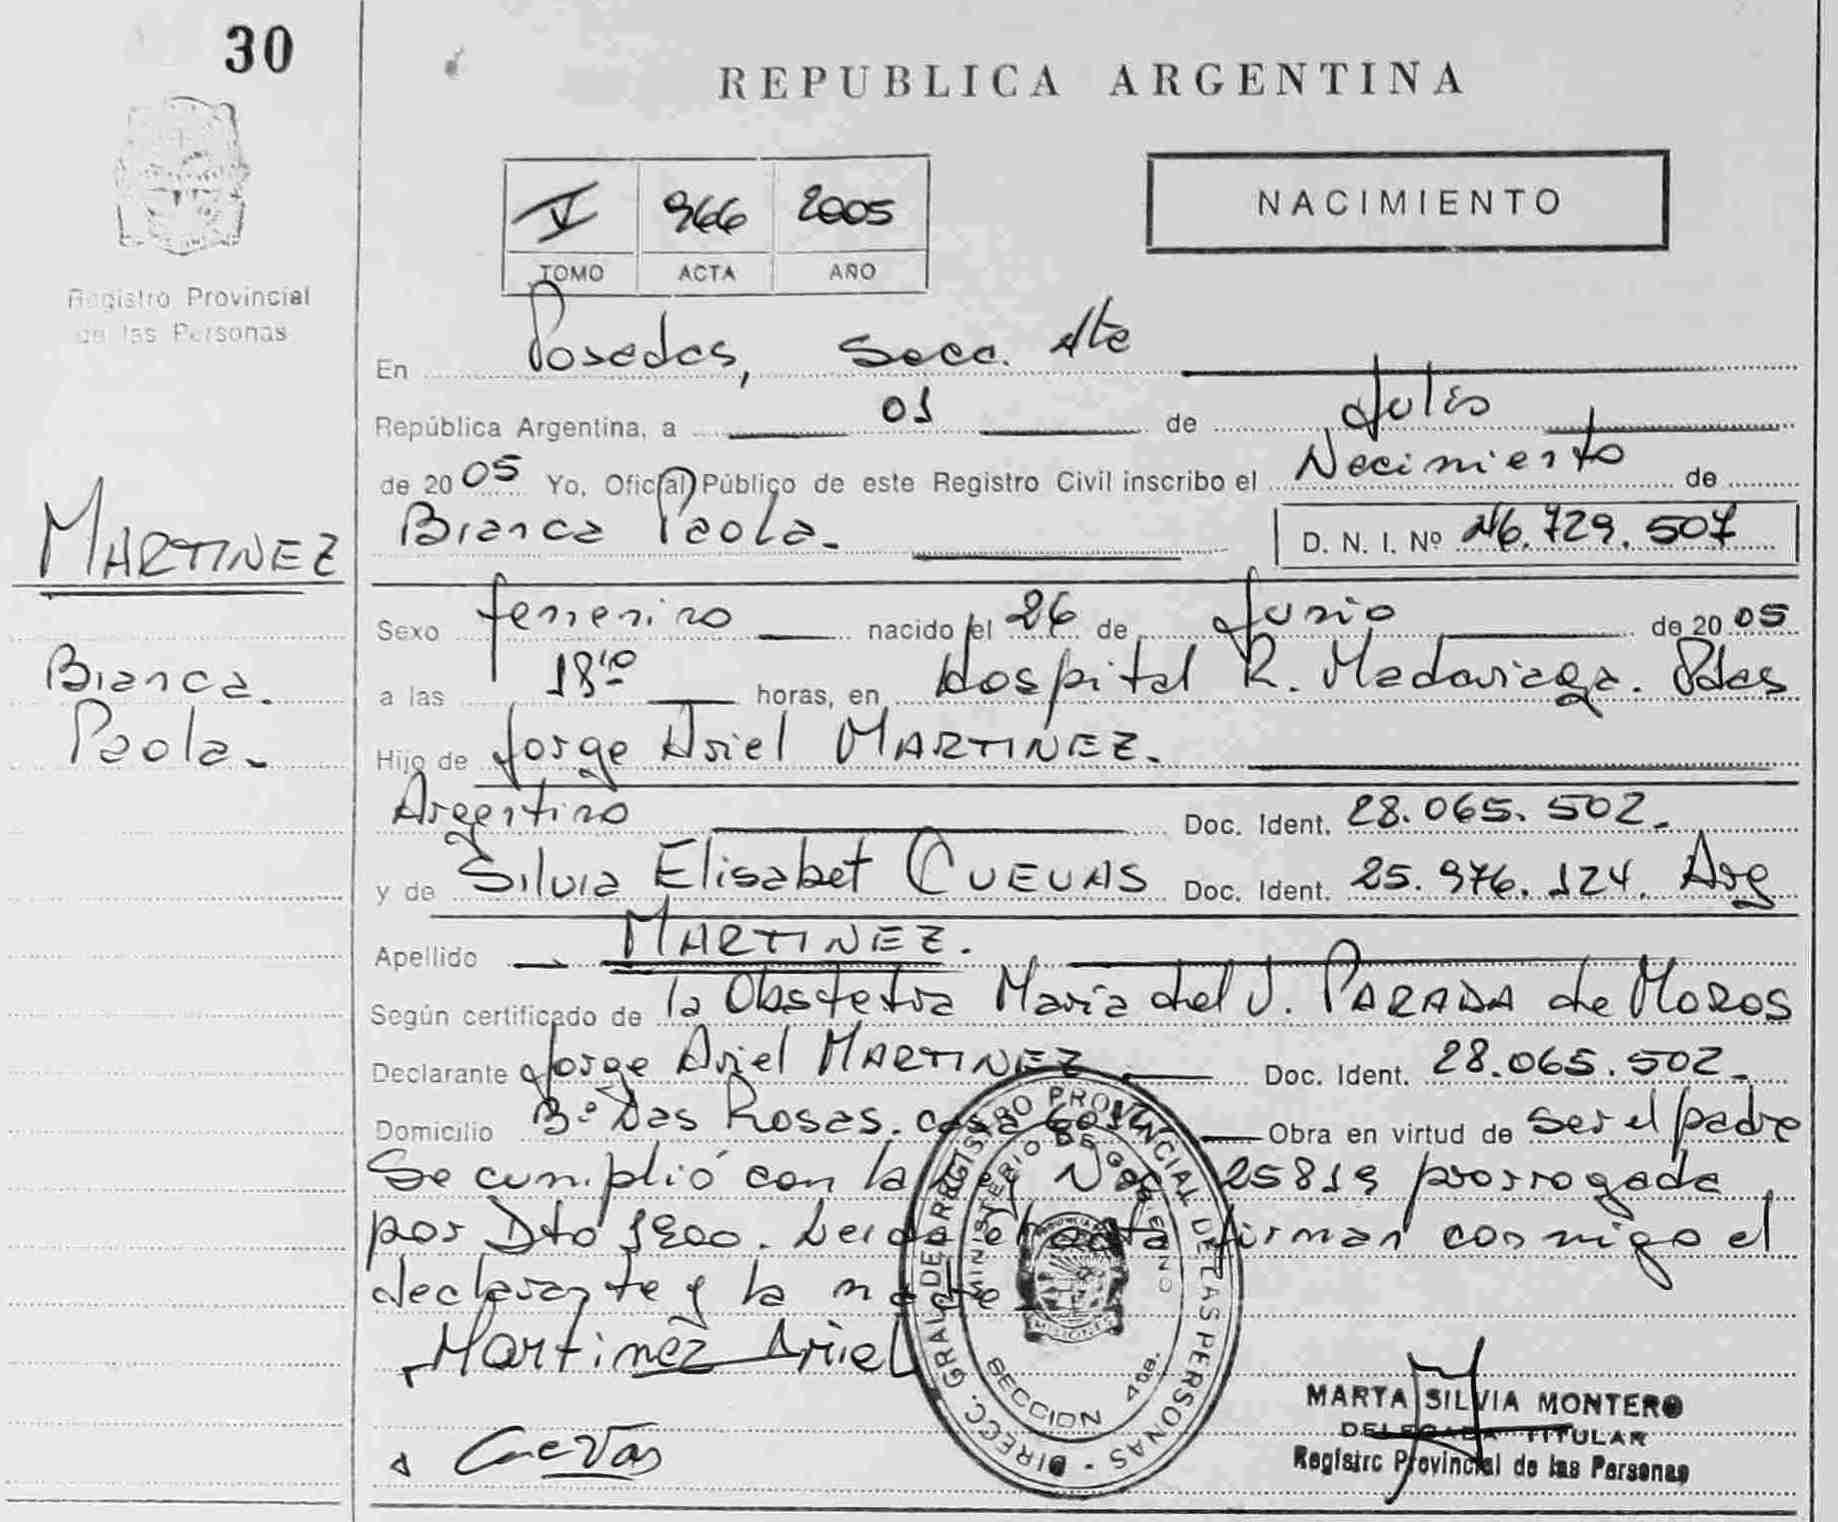 30
REPUBLICA ARGENTINA
Registro Provincial
de las Personas
V 966 2005
TOMO ACTA AÑO
NACIMIENTO
En Posadas, Secc. 4ta
República Argentina, a 01 de Julio
de 2005 Yo, Oficial Público de este Registro Civil inscribo el Nacimiento de
Bianca Paola.
D. N. I. Nº 46.729.507
MARTINEZ
Bianca.
Paola.
Sexo femenino nacido el 26 de Junio de 2005
a las 18'10 horas, en Hospital R. Madariaga. Pdas
Hijo de Jorge Ariel MARTINEZ.
Argentino Doc. Ident. 28.065.502.
y de Silvia Elisabet CUEVAS Doc. Ident. 25.976.124. Arg
Apellido MARTINEZ.
Según certificado de la Obstetra Maria del J. PARADA de MOROS
Declarante Jorge Ariel MARTINEZ Doc. Ident. 28.065.502.
Domicilio Bº Las Rosas. casa Obra en virtud de ser el padre
Se cumplió con la Ley Nac. 25819 prorrogada
por Dto 1900. Leida el acta firman conmigo el
declarante y la madre
Martinez Ariel
Cuevas
DIRECC. GRAL. DE REGISTRO PROVINCIAL DE LAS PERSONAS
MINISTERIO DE GOBIERNO
MISIONES
SECCION 4ta.
MARTA SILVIA MONTERO
DELEGADA TITULAR
Registro Provincial de las Personas